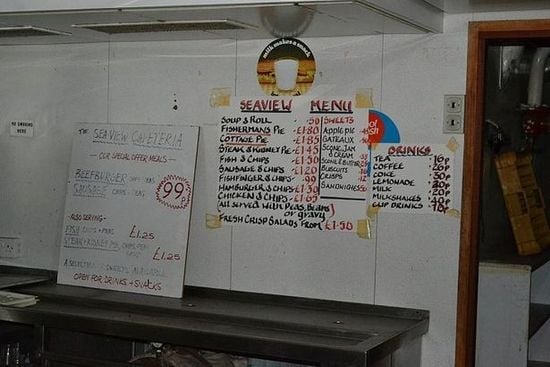 NO SMOKING
HERE
THE SEA VIEW CAFETERIA
OUR SPECIAL OFFER MEALS
BEEFBURGER CHIPS + PEAS
SAUSAGE CHIPS + PEAS
99
ALSO SERVING
FISH CHIPS + PEAS £1.25
STEAK + KIDNEY PIE, CHIPS, PEAS
£1.25
A SELECTION OF SWEETS AVAILABLE
OPEN FOR DRINKS + SNACKS
milk makes a snack
SEAVIEW MENU
SOUP & ROLL .50
FISHERMANS PIE £1.80
COTTAGE PIE £1.85
STEAK & KIDNEY PIE £1.45
FISH & CHIPS £1.30
SAUSAGE & CHIPS £1.20
FISHFINGER & CHIPS .90
HAMBURGER & CHIPS £1.30
CHICKEN & CHIPS £1.65
ALL SERVED WITH PEAS, BEANS
OR GRAVY
FRESH CRISP SALADS FROM £1.50
SWEETS
APPLE PIE
GATEAUX
SCONE, JAM
& CREAM
SCONE & BUTTER
BISCUITS
CRISPS
SANDWICHES
DRINKS
TEA
COFFEE
COKE
LEMONADE
MILK
MILKSHAKES
CUP DRINKS